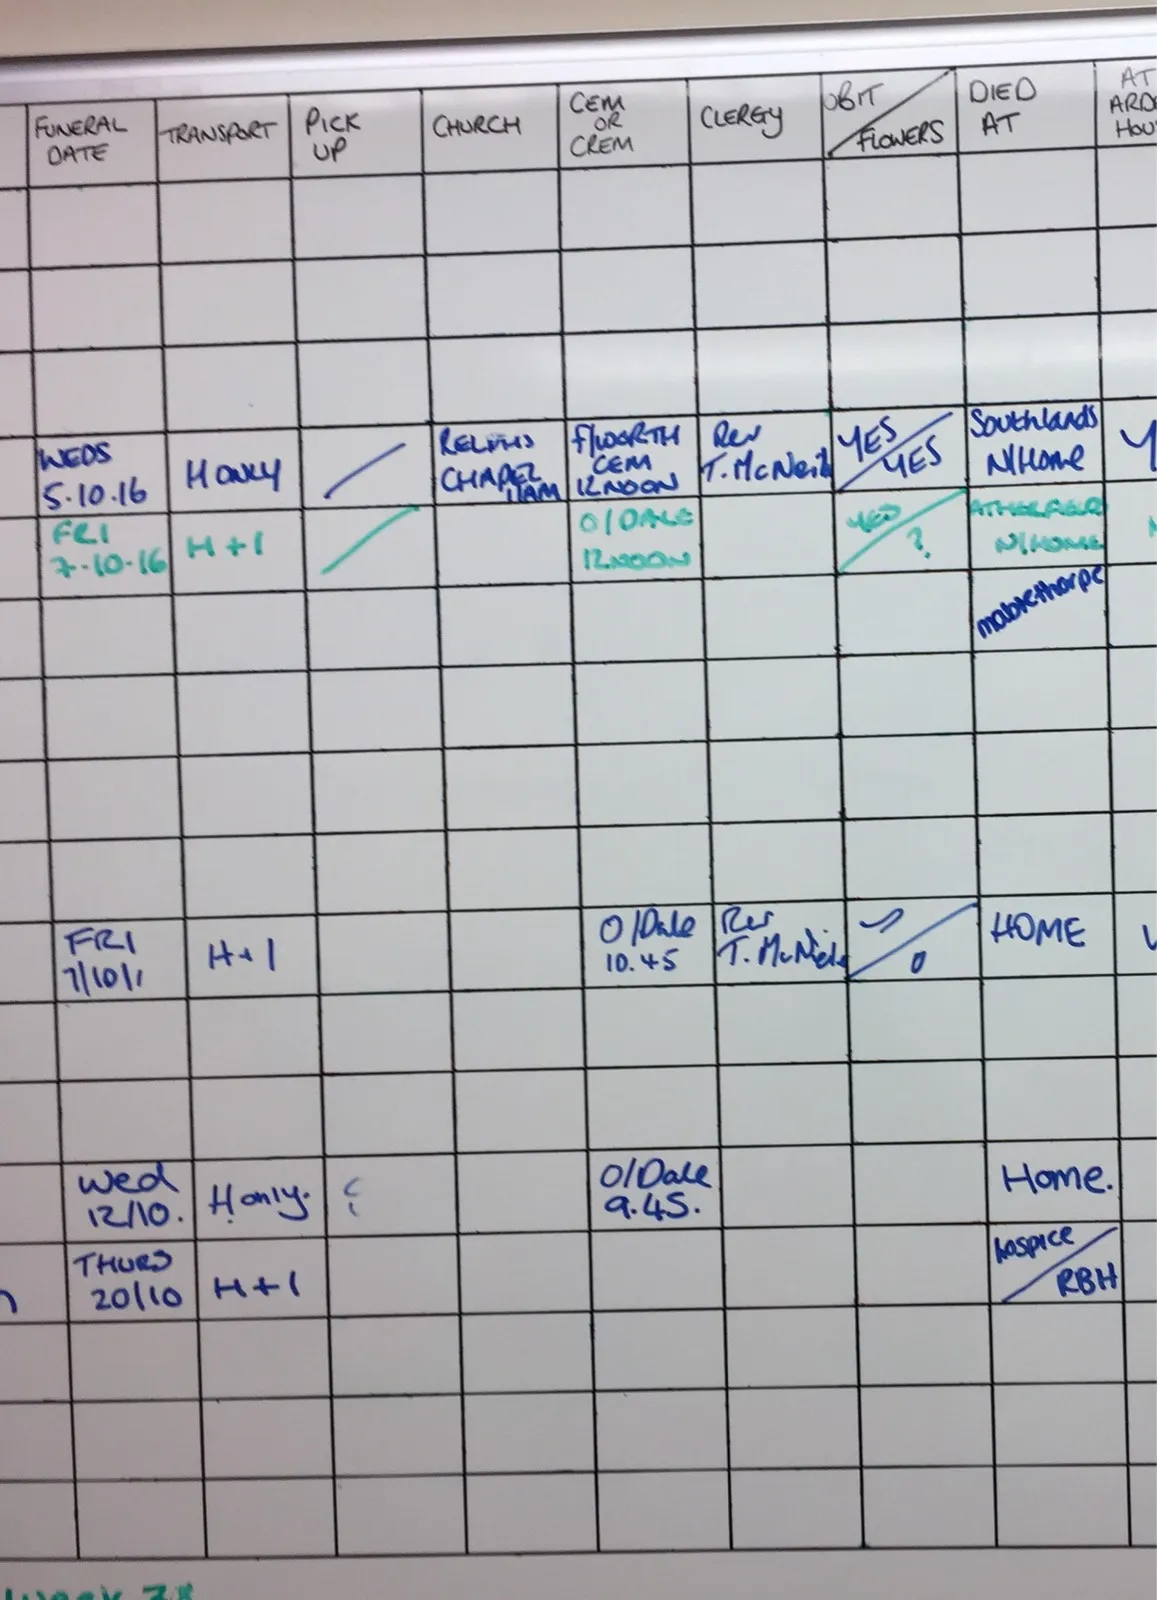 FUNERAL DATE
TRANSPORT
PICK UP
CHURCH
CEM OR CREM
CLERGY
OBIT FLOWERS
DIED AT
AT
WEDS
5.10.16
H only
CHAPEL
11AM
F/WORTH
CEM
12 NOON
Rev
T. McNeil
YES
YES
Southlands
N/Home
FRI
7.10.16
H+1
O/DALE
12 NOON
YES
?
N/HOME
mablethorpe
FRI
7/10/1
H+1
O/Dale
10.45
Rev
HOME
Wed
12/10.
H only.
O/Dale
9.45.
Home.
THURS
20/10
H+1
hospice
RBH
Week